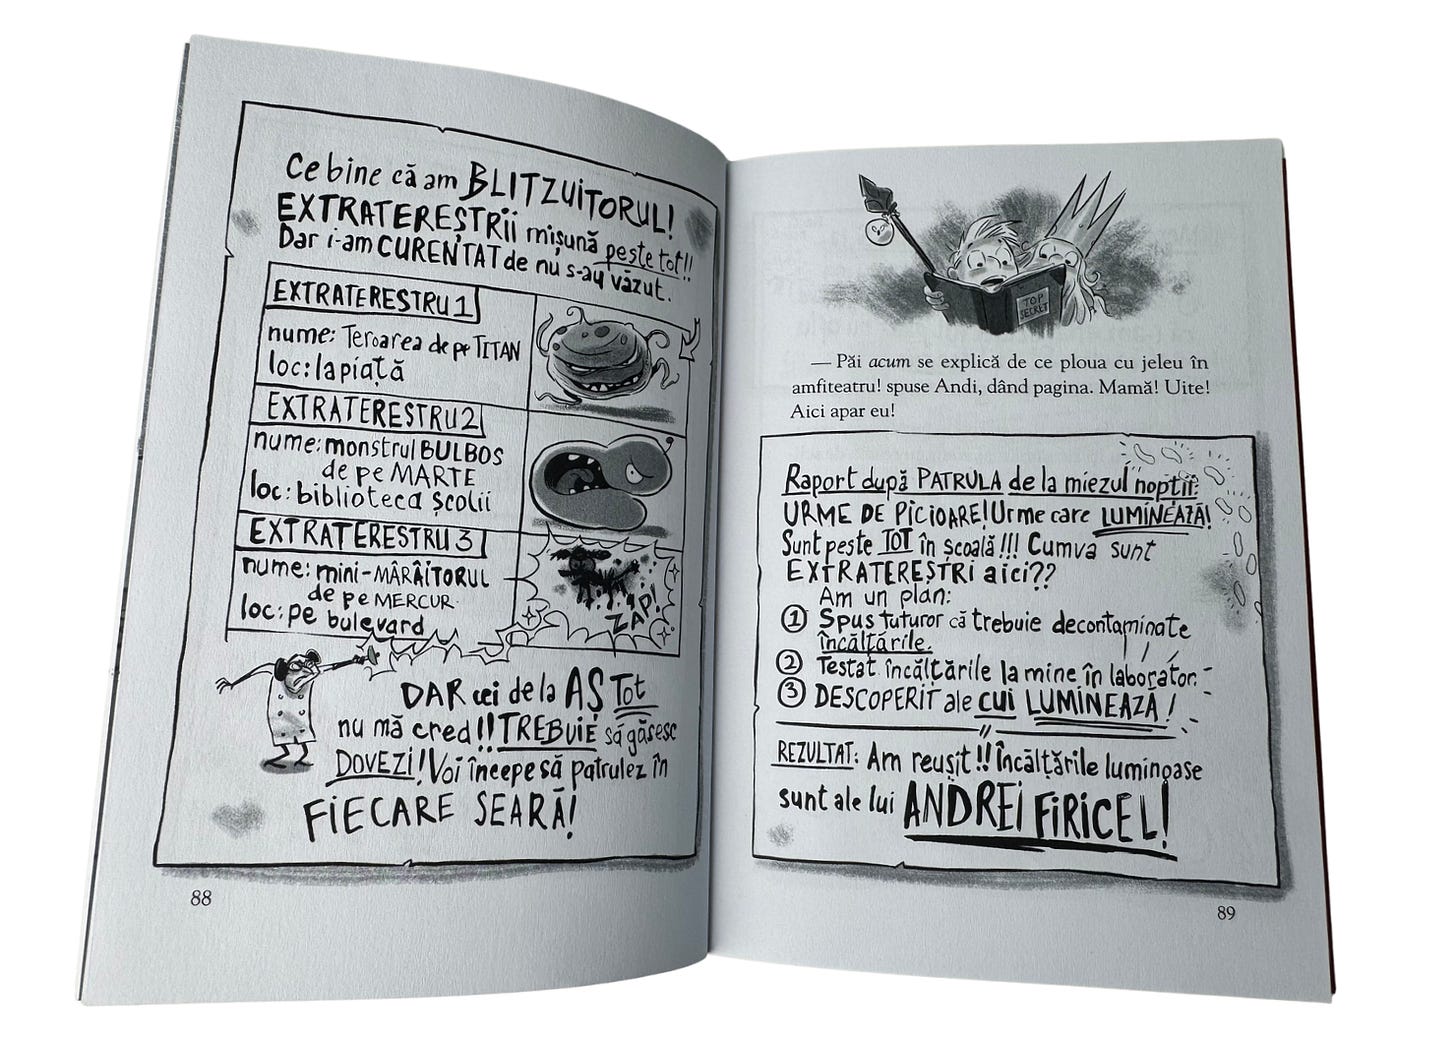 Ce bine că am BLITZUITORUL!
EXTRATEREȘTRII mișună peste tot!!
Dar i-am CURENTAT de nu s-au văzut.
EXTRATERESTRU 1
nume: Teroarea de pe TITAN
loc: la piață
EXTRATERESTRU 2
nume: monstrul BULBOS
de pe MARTE
loc: biblioteca școlii
EXTRATERESTRU 3
nume: mini-MÂRÂITORUL
de pe MERCUR
loc: pe bulevard
ZAP!
DAR cei de la AS TOT
nu mă cred!! TREBUIE să găsesc
DOVEZI! Voi începe să patrulez în
FIECARE SEARĂ!
88
TOP
SECRET
— Păi acum se explică de ce ploua cu jeleu în
amfiteatru! spuse Andi, dând pagina. Mamă! Uite!
Aici apar eu!
Raport după PATRULA de la miezul nopții:
URME DE PICIOARE! Urme care LUMINEAZĂ!
Sunt peste TOT în școală!!! Cumva sunt
EXTRATEREȘTRI aici??
Am un plan:
1 Spus tuturor că trebuie decontaminate
încălțările.
2 Testat încălțările la mine în laborator.
3 DESCOPERIT ale cui LUMINEAZĂ!
REZULTAT: Am reușit!! Încălțările luminoase
sunt ale lui ANDREI FIRICEL!
89